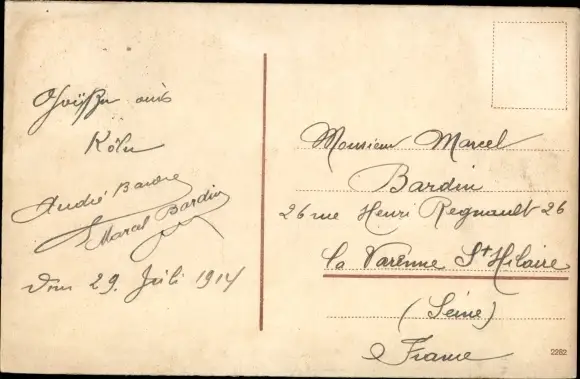 Grüße aus
Köln
André Bardne
Marcel Bardin
Dom 29. Juli 1914
Monsieur Marcel
Bardin
26 rue Henri Regnault 26
la Varenne St Hilaire
(Seine)
France
2282